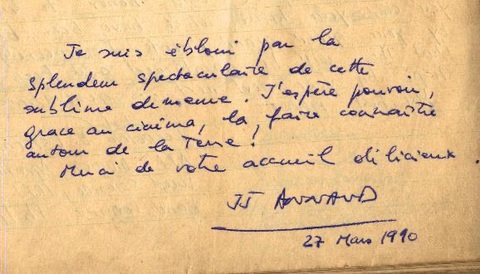 Je suis ébloui par la
splendeur spectaculaire de cette
sublime demeure. J'espère pouvoir,
grace au cinéma, la, faire connaître
autour de la Terre !
Merci de votre accueil délicieux.
JJ ANNAUD
27 Mars 1990